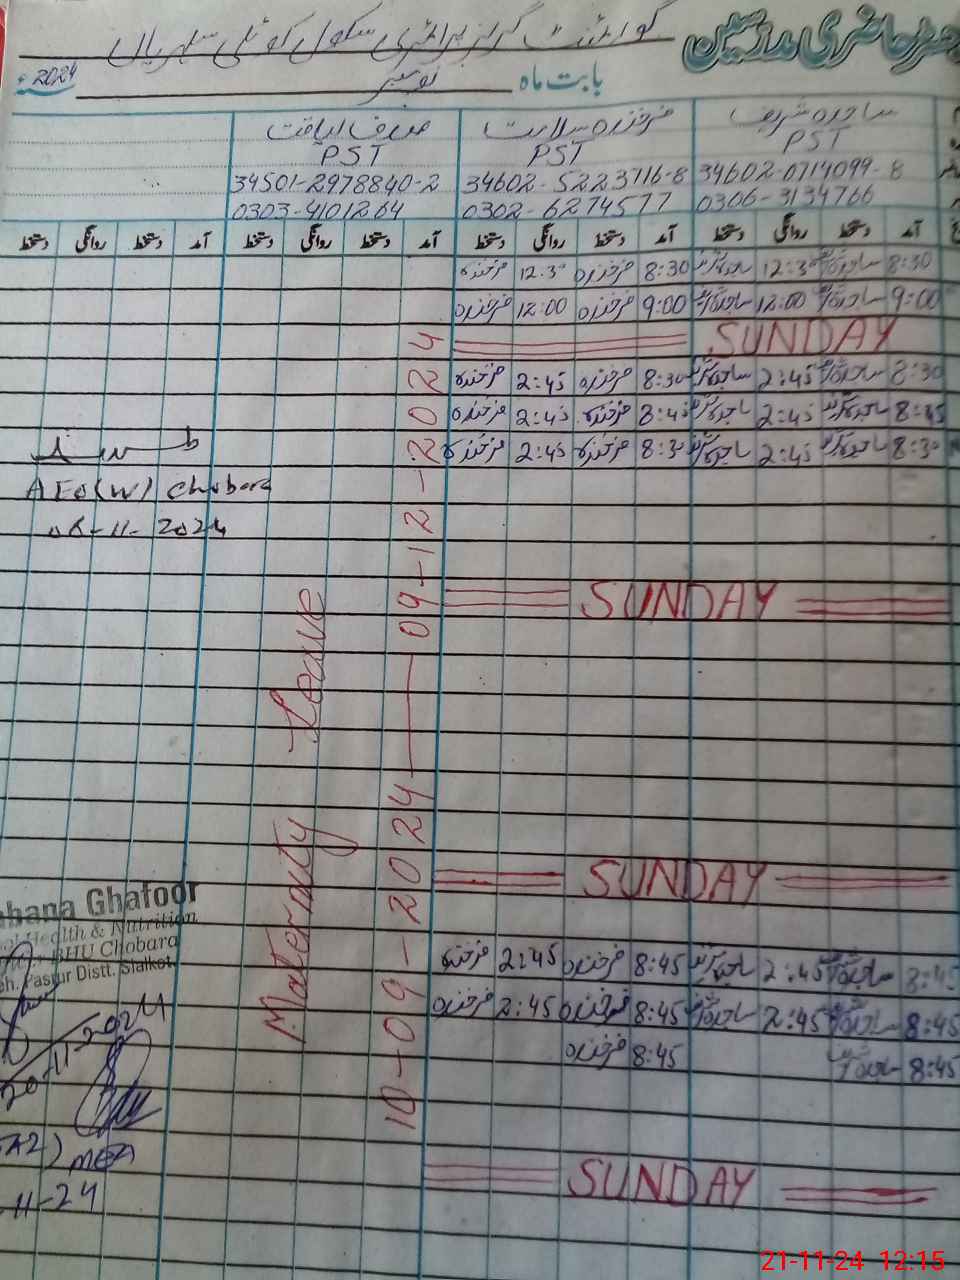 حاضری مدرسین
گورنمنٹ گرلز پرائمری سکول کوٹلی
بابت ماہ نومبر 2024ء
ساجدہ شریف فرخندہ سلامت لیاقت
PST PST PST
34602-0714099-8 34602-5223716-8 34501-2978840-2
0306-3134766 0302-6274577 0303-4101264
آمد دستخط روانگی دستخط آمد دستخط روانگی دستخط آمد دستخط روانگی دستخط آمد دستخط روانگی دستخط
8:30 ساجدہ شریف 12:30 ساجدہ شریف 8:30 فرخندہ 12:30 فرخندہ
9:00 ساجدہ شریف 12:00 ساجدہ شریف 9:00 فرخندہ 12:00 فرخندہ
SUNDAY
8:30 ساجدہ شریف 2:45 ساجدہ شریف 8:30 فرخندہ 2:45 فرخندہ
8:45 ساجدہ شریف 2:45 ساجدہ شریف 8:45 فرخندہ 2:45 فرخندہ
8:30 ساجدہ شریف 2:45 ساجدہ شریف 8:30 فرخندہ 2:45 فرخندہ
AEO(W) Chobara
08-11-2024
SUNDAY
Maternity Leave
10-09-2024 — 09-12-2024
SUNDAY
Ghafoor
Health & Nutrition
BHU Chobara
Pasrur Distt. Sialkot
20-11-2024
8:45 ساجدہ شریف 2:45 ساجدہ شریف 8:45 فرخندہ 2:45 فرخندہ
8:45 ساجدہ شریف 2:45 ساجدہ شریف 8:45 فرخندہ 2:45 فرخندہ
8:45 ساجدہ شریف 8:45 فرخندہ
MEA
11-24
SUNDAY
21-11-24 12:15